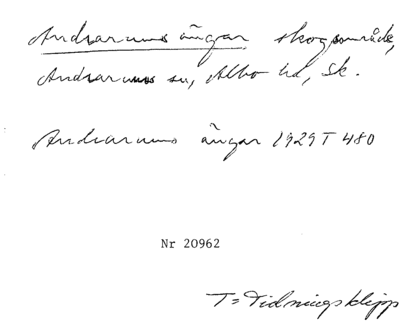 Andrarums ängar skogsområde,
Andrarums sn, Albo hd, Sk.
Andrarums ängar 1929 T 480
Nr 20962
T = Tidningsklipp